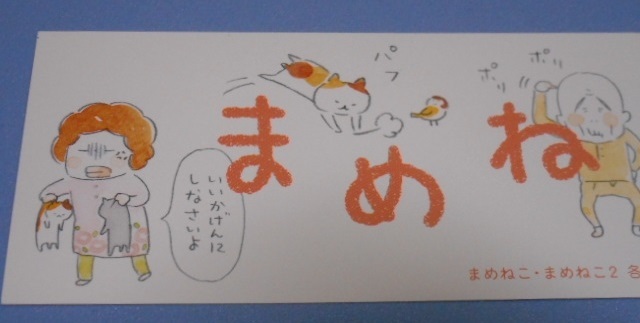 まめね
パフ
ポリ
ポリ
いいかげんに
しなさいよ
まめねこ・まめねこ2 各